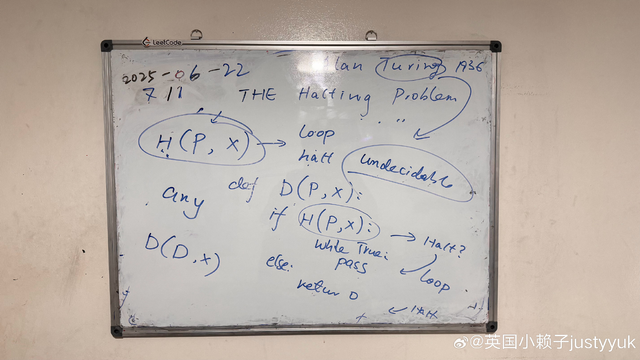 LeetCode
Alan Turing 1936
2025-06-22
711 THE Halting Problem
H(P, x) → loop
halt
undecidable
def D(P, x):
any
if H(P, x): → Halt?
while True:
D(D, x)
else: pass
loop
return 0
Halt
@英国小赖子justyyuk